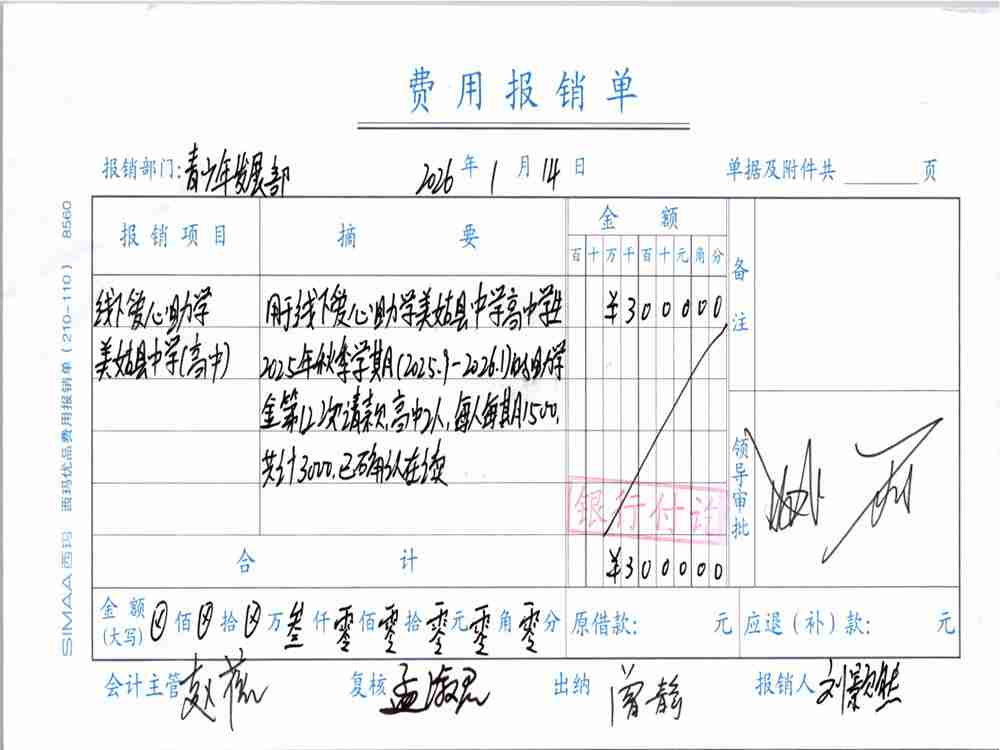 费用报销单
报销部门:青少年发展部 2026年1月14日 单据及附件共 页
报销项目 摘要 金额 备注
百十万千百十元角分
线下爱心助学 用于线下爱心助学美姑县中学高中学生 ¥300000
美姑县中学(高中) 2025年秋季学期(2025.9-2026.1)的助学
金第12次请款,高中2人,每人每期1500,
共计3000,已确认在读
银行付讫
领导审批
合计 ¥300000
金额(大写) 佰 拾 万叁仟零佰零拾零元零角零分 原借款: 元 应退(补)款: 元
会计主管 赵薇 复核 孟淑思 出纳 曾静 报销人 刘景然
SIMAA 西玛 西玛优品费用报销单(210-110) 8560